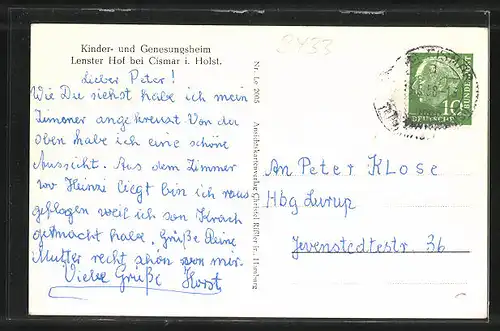 2433
Kinder- und Genesungsheim
Lenster Hof bei Cismar i. Holst.
Lieber Peter!
Wie Du siehst habe ich mein
Zimmer angekreuzt Von da
oben habe ich eine schöne
Aussicht. Aus dem Zimmer
wo Heinzi liegt bin ich raus
geflogen weil ich son Krach
gemacht habe. Grüße Deine
Mutter recht schön von mir.
Viele Grüße Horst
Nr. Le 2005 Ansichtskartenverlag Christel Rißler jr., Hamburg
10
DEUTSCHE
BUNDESPOST
An Peter Klose
Hbg Lurup
Jevenstedtestr. 36